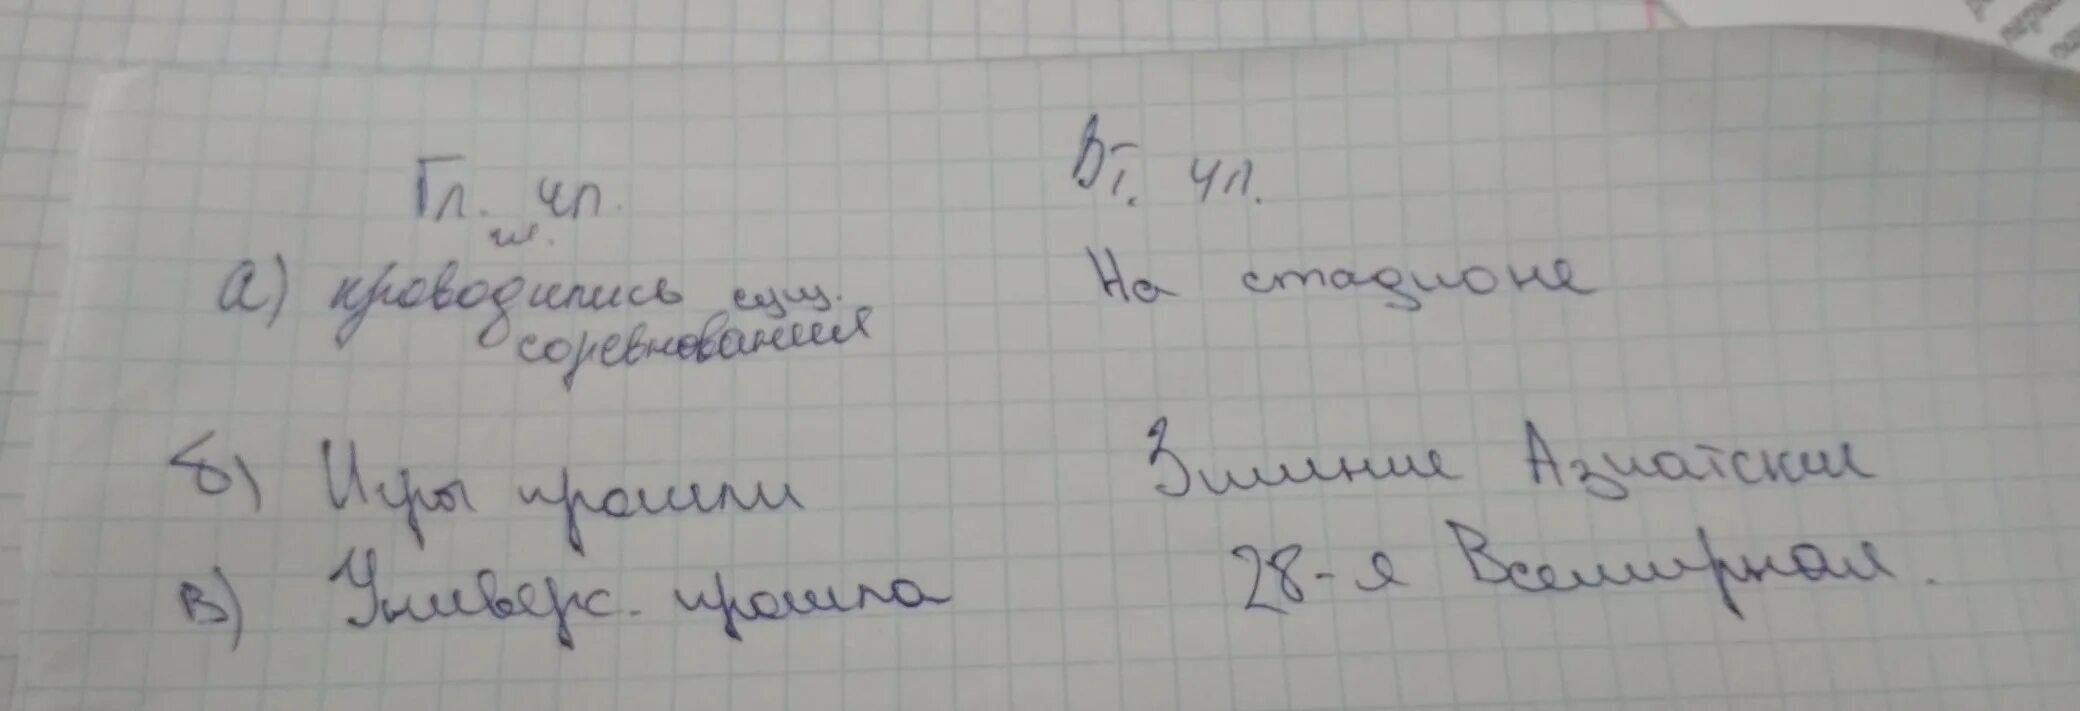 Гл. чл.
Вт. чл.
гл.
а) проводились сущ. На стадионе
соревнования
б) Игры прошли Зимние Азиатские
в) Универс. прошла 28-я Всемирная.